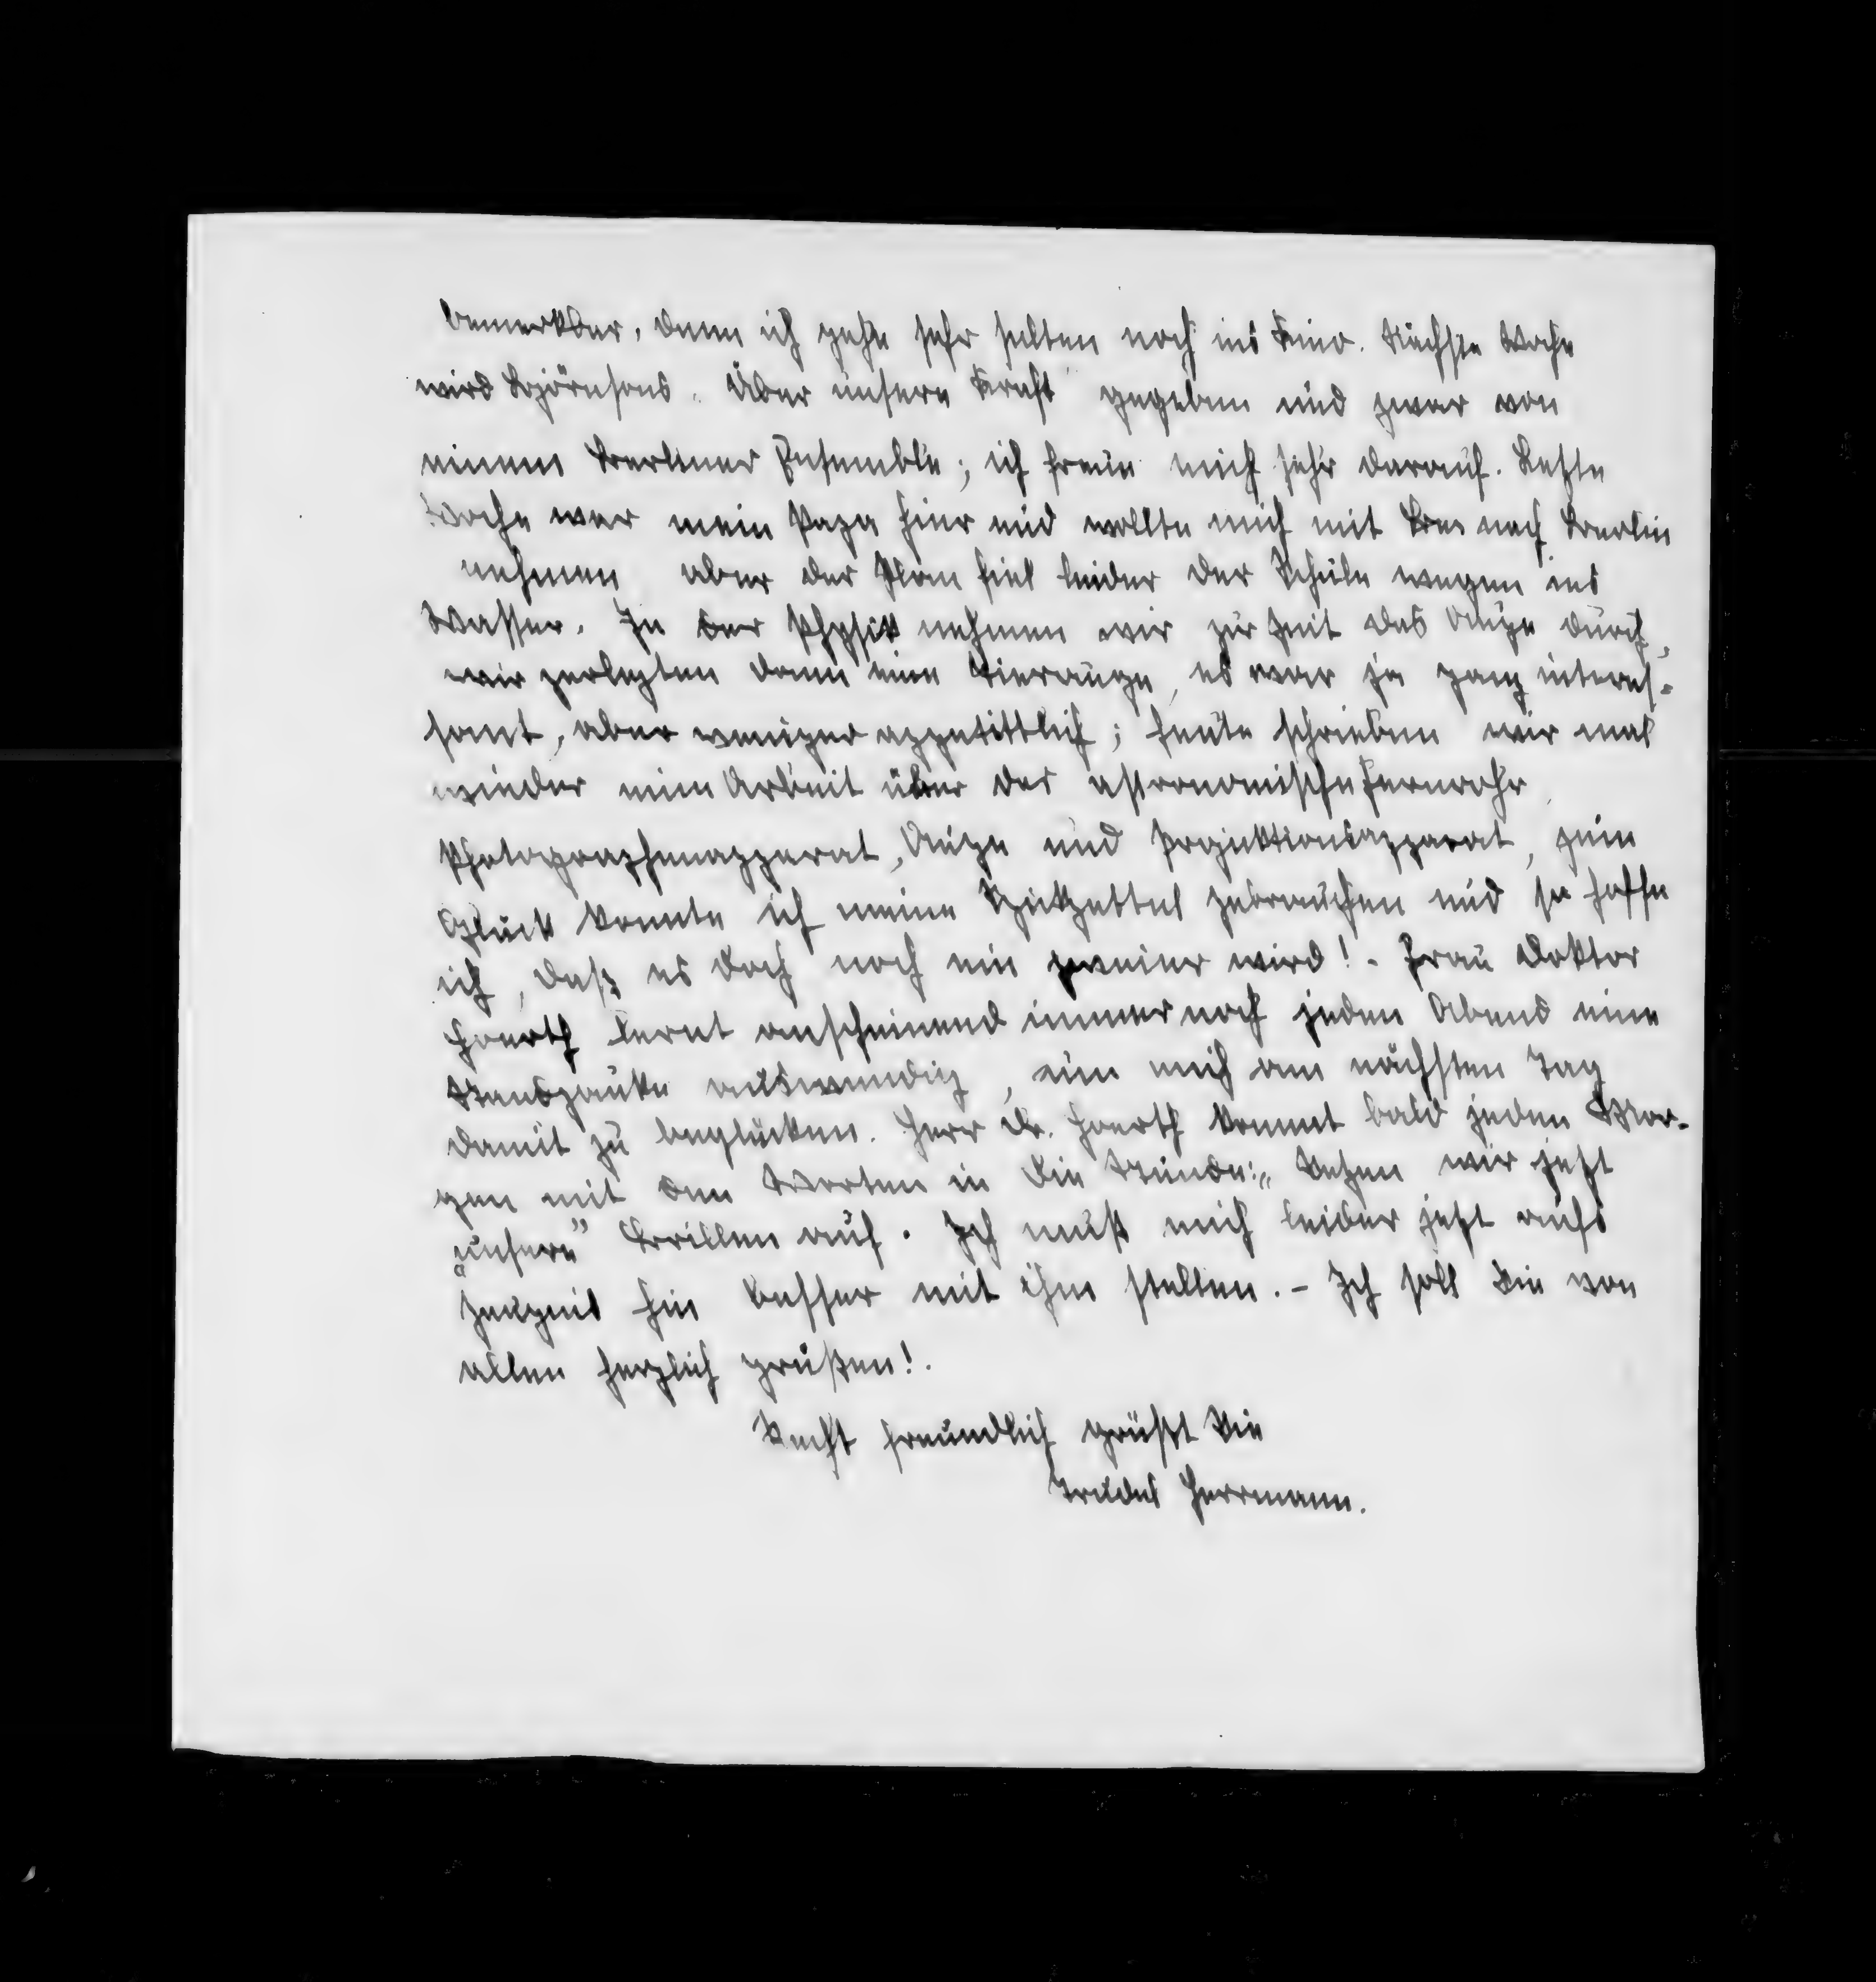 bemerkbar, denn ich gehe sehr selten noch ins Kino. Nächste Woche
wird Björnsons „Über unsere Kraft" gegeben und zwar von
einem Berliner Ensemble; ich freue mich sehr darauf. Letzte
Woche war mein Papa hier und wollte mich mit nach Berlin
nehmen aber der Plan fiel leider der Schule wegen ins
Wasser. In der Physik nehmen wir zur Zeit das Auge durch,
wir zerlegten dann eine Tierauge, es war ja ganz interes-
sant, aber weniger appetittlich; heute schrieben wir mal
wieder eine Arbeit über das astronomische Fernrohr,
Photographenapparat, Auge und Projektionsapparat, zum
Glück konnte ich meine Spickzettel gebrauchen und so hoffe
ich, daß es doch noch ein zweier wird! - Frau Doktor
Hoerth lernt anscheinend immer noch jeden Abend eine
Standpauke auswendig, um mich am nächsten Tag
damit zu beglücken. Herr Dr. Hoerth kommt bald jeden Mor-
gen mit den Worten in die Stunde: „Setzen wir jetzt
„unsere" Brillen auf. Ich muß mich leider jetzt aufs
Zeugnis hin besser mit ihm stellen. - Ich soll Sie von
allen herzlich grüßen!.
Recht freundlich grüßt Sie
Trudel Herrmann.